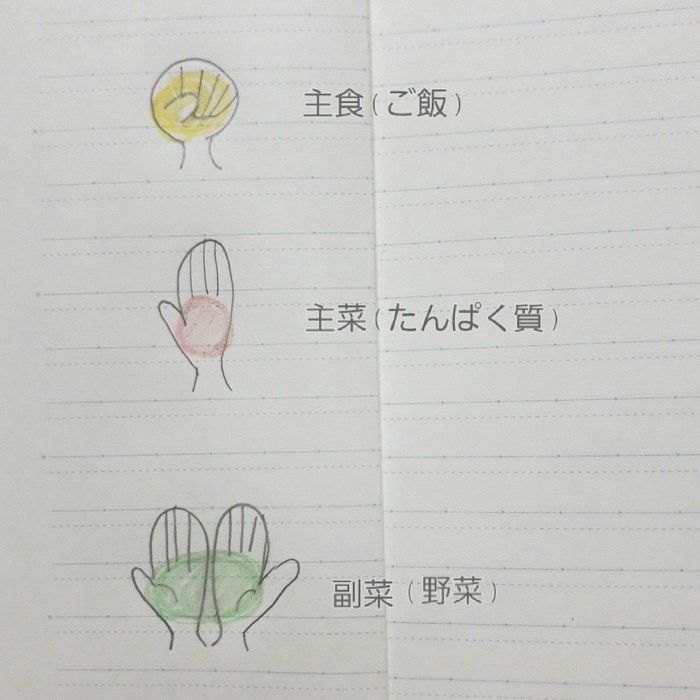 主食(ご飯)
主菜(たんぱく質)
副菜(野菜)